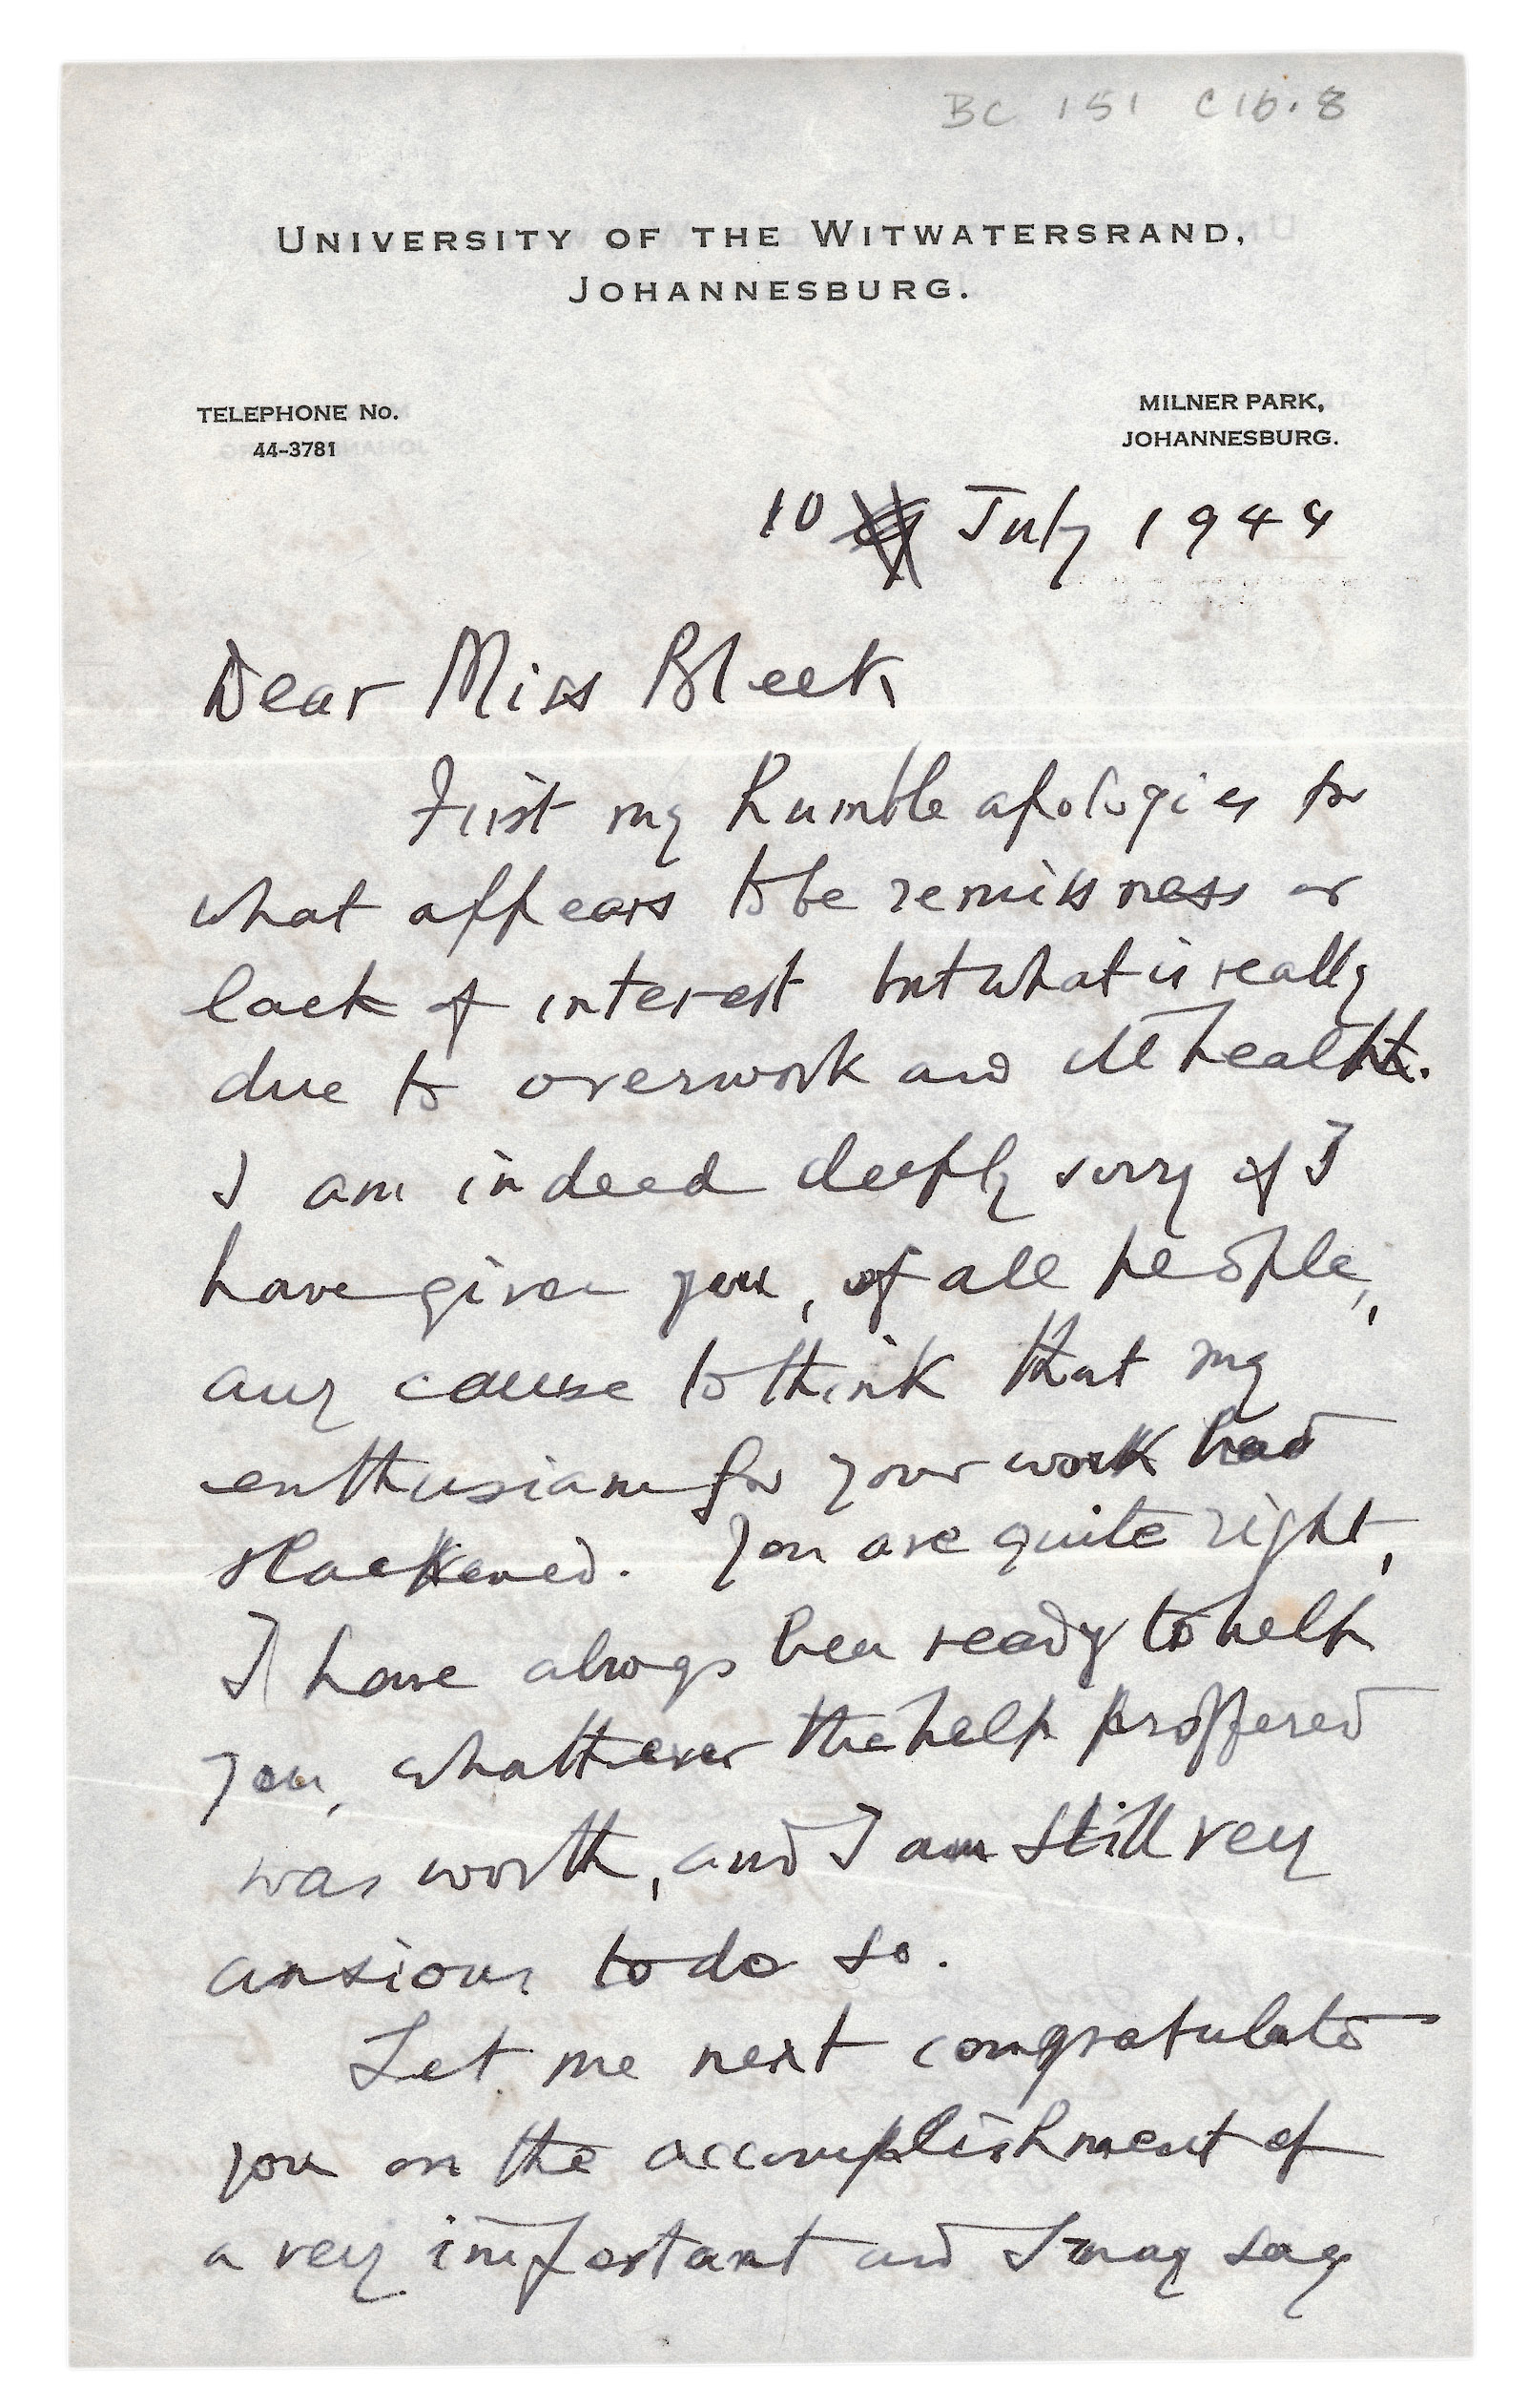 BC 151 C16.8
UNIVERSITY OF THE WITWATERSRAND,
JOHANNESBURG.
TELEPHONE No.
44-3781
MILNER PARK,
JOHANNESBURG.
10 July 1944
Dear Miss Bleek
First my humble apologies for
what appears to be remissness or
lack of interest but what is really
due to overwork and ill health.
I am indeed deeply sorry if I
have given you, of all people,
any cause to think that my
enthusiasm for your work had
slackened. You are quite right,
I have always been ready to help
you, whatever the help proffered
was worth, and I am still very
anxious to do so.
Let me next congratulate
you on the accomplishment of
a very important and I may say